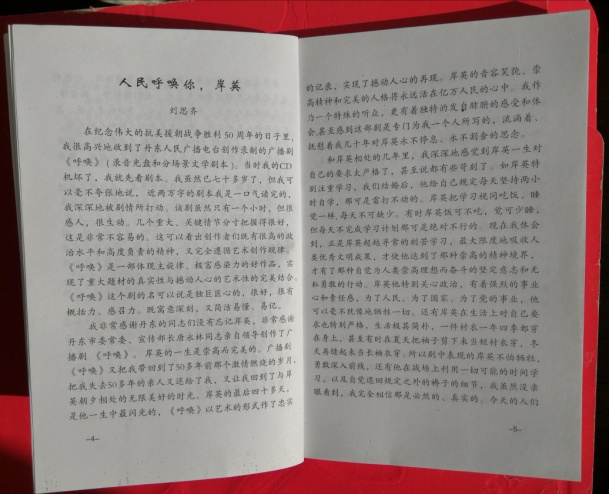 人民呼唤你，岸英
刘思齐
在纪念伟大的抗美援朝战争胜利50周年的日子里，
我很高兴地收到了丹东人民广播电台创作录制的广播剧
《呼唤》（录音光盘和分场景文学剧本）。当时我的CD
机坏了，我就先看剧本。我虽然已七十多岁了，但我可
以毫不夸张地说，近两万字的剧本我是一口气读完的，
我深深地被剧情所打动。该剧虽然只有一个小时，但很
感人，很生动。几个重大、关键情节分寸把握得很好，
这是非常不容易的。这可以看出创作者们既有很高的政
治水平和高度负责的精神，又完全遵循艺术创作规律。
《呼唤》是一部体现主旋律，极富感染力的好作品，实
现了重大题材的真实性与撼动人心的艺术性的完美结合。
《呼唤》这个剧的名可以说是独具匠心的，很好，很有
概括力、感召力。既寓意深刻，又简洁易懂、易记。
我非常感谢丹东的同志们没有忘记岸英，非常感谢
丹东市委常委、宣传部长唐永林同志亲自领导创作了广
播剧《呼唤》。岸英的一生是崇高而完美的。广播剧
《呼唤》又把我带回到了50多年前那个激情燃烧的岁月，
把我失去50多年的亲人又还给了我，又让我回到了与岸
英朝夕相处的无限美好的时光。岸英的最后四十多天，
是他一生中最闪光的，《呼唤》以艺术的形式作了忠实
-4-
的记录，实现了撼动人心的再现。岸英的音容笑貌、崇
高精神和完美的人格得永远活在亿万人民的心中。我作
为一个特殊的听众，更有着独特的发自肺腑的感受和体
会，甚至感到这部剧是专门为我一个人所写的，流淌着、
抚慰着我几十年对岸英永不停息、永不割舍的思念。
和岸英相处的几年里，我深深地感觉到岸英一生对
自己的要求太严格了，甚至说都有些苛刻了。如岸英特
别注重学习，我们结婚后，他给自己规定每天坚持两小
时自学，那可是雷打不动的。岸英把学习视同吃饭、睡
觉一样，每天不可缺少。有时岸英饭可不吃，觉可少睡，
但每天不完成学习计划那可是绝对不行的。现在我体会
到，正是岸英超越寻常的刻苦学习，最大限度地吸收人
类优秀文明成果，才使他达到了那种崇高的精神境界，
才有了那种自觉为人类崇高理想而奋斗的坚定意志和无
私勇敢的行动。岸英他特别关心政治，有着强烈的事业
心和责任感，为了人民、为了国家、为了党的事业，他
可以毫不犹豫地牺牲一切。还有岸英在生活上对自己要
求也特别严格，生活极其简朴，一件衬衣一年四季都穿
在身上，甚至有时在夏天把袖子剪下来当短衬衣穿，冬
天再缝起来当长袖衣穿。所以剧中表现的岸英不怕牺牲，
勇敢深入前线，还有他在战场上利用一切可能的时间学
习，以及自觉退回规定之外的褥子的细节，我虽然没亲
眼看到，我完全相信那是必然的、真实的。今天的人们
-5-